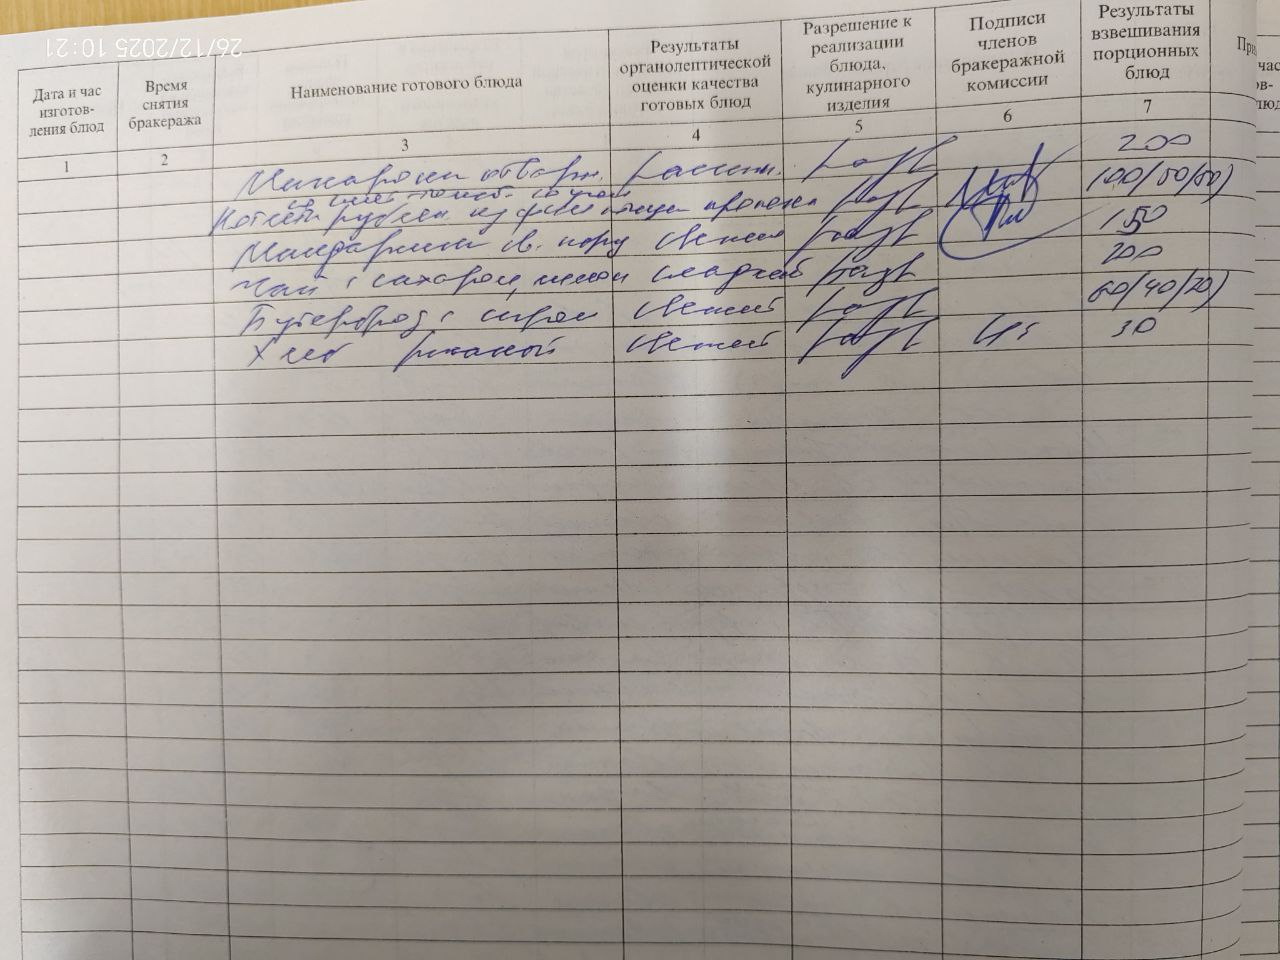 26/12/2025 10:21
Дата и час изготов-
ления блюд
Время
снятия
бракеража
Наименование готового блюда
Результаты
органолептической
оценки качества
готовых блюд
Разрешение к
реализации
блюда,
кулинарного
изделия
Подписи
членов
бракеражной
комиссии
Результаты
взвешивания
порционных
блюд
1 2 3 4 5 6 7
Макароны отварн. рассып. 200
Котлеты рублен. из филе птицы 100/50/50
Мандарины св. свежие 150
Чай с сахаром, сладкий 200
Бутерброд с сыром свежий 60/40/20
Хлеб ржаной свежий 30